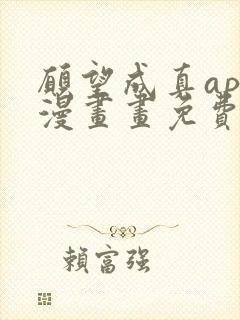 願望成真ap
漫畫畫免費
賴富强